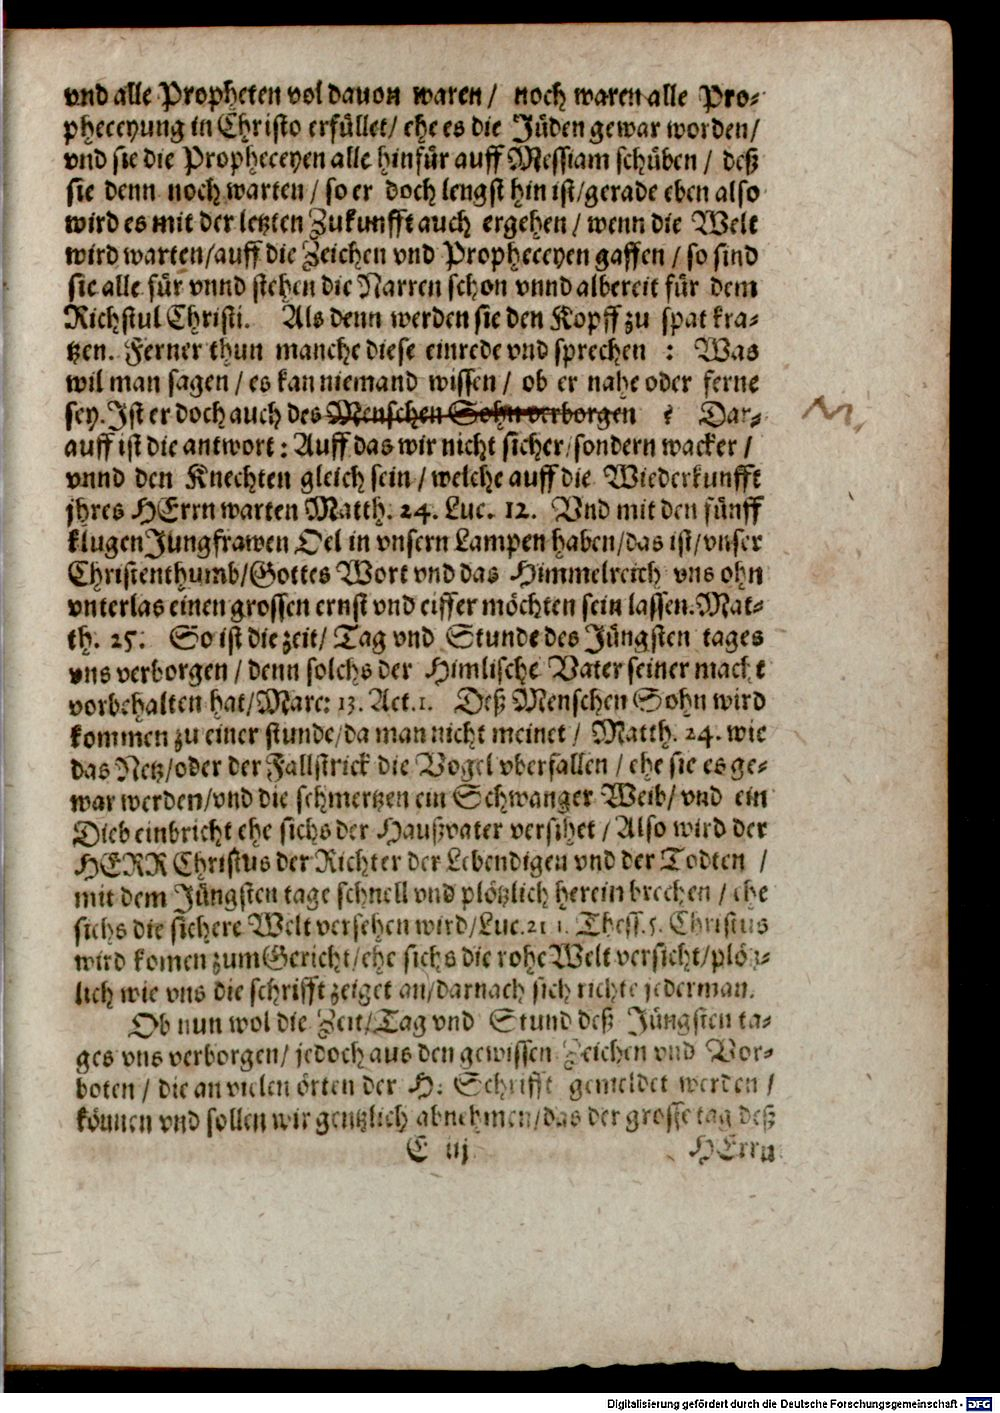 vnd alle Propheten vol dauon waren / noch waren alle Pro-
pheceyung in Christo erfüllet / ehe es die Jüden gewar worden /
vnd sie die Propheceyen alle hinfür auff Messiam schüben / deß
sie denn noch warten / so er doch lengst hin ist / gerade eben also
wird es mit der letzten Zukunfft auch ergehen / wenn die Welt
wird warten / auff die Zeichen vnd Propheceyen gaffen / so sind
sie alle für vnnd stehen die Narren schon vnnd albereit für dem
Richstul Christi. Als denn werden sie den Kopff zu spat kra-
tzen. Ferner thun manche diese einrede vnd sprechen : Was
wil man sagen / es kan niemand wissen / ob er nahe oder ferne
sey. Ist er doch auch des Menschen Sohn verborgen ? Dar-
auff ist die antwort : Auff das wir nicht sicher / sondern wacker /
vnnd den Knechten gleich sein / welche auff die Wiederkunfft
jhres HErrn warten Matth. 24. Luc. 12. Vnd mit den fünff
klugen Jungfrawen Oel in vnsern Lampen haben / das ist / vnser
Christenthumb / Gottes Wort vnd das Himmelreich vns ohn
vnterlas einen grossen ernst vnd eiffer möchten sein lassen. Mat-
th. 25. So ist die zeit / Tag vnd Stunde des Jüngsten tages
vns verborgen / denn solchs der Himlische Vater seiner macht
vorbehalten hat / Marc: 13. Act. 1. Deß Menschen Sohn wird
kommen zu einer stunde / da man nicht meinet / Matth. 24. wie
das Netz / oder der Fallstrick die Vogel vberfallen / ehe sie es ge-
war werden / vnd die schmertzen ein Schwanger Weib / vnd ein
Dieb einbricht ehe sichs der Haußvater versihet / Also wird der
HERR Christus der Richter der Lebendigen vnd der Todten /
mit dem Jüngsten tage schnell vnd plötzlich herein brechen / ehe
sichs die sichere Welt versehen wird / Luc. 21 1. Thess. 5. Christus
wird komen zum Gericht / ehe sichs die rohe Welt versicht / plötz-
lich wie vns die schrifft zeiget an / darnach sich richte jederman.
Ob nun wol die Zeit / Tag vnd Stund deß Jüngsten ta-
ges vns verborgen / jedoch aus den gewissen Zeichen vnd Vor-
boten / die an vielen örten der H. Schrifft gemeldet werden /
können vnd sollen wir gentzlich abnehmen / das der grosse tag deß
E iij HErrn
Digitalisierung gefördert durch die Deutsche Forschungsgemeinschaft - DFG